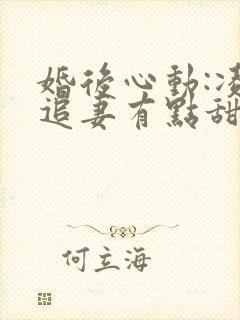 婚後心動:凌
追妻有點甜
何立海